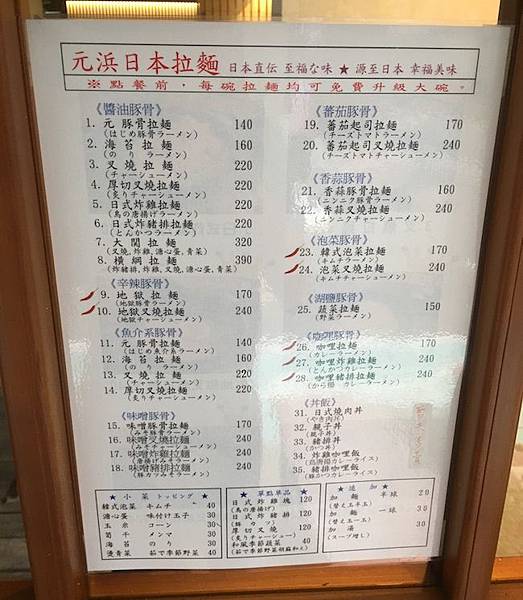 元浜日本拉麵 日本直伝 至福な味 ★ 源至日本 幸福美味
※點餐前，每碗拉麵均可免費升級大碗。
《醬油豚骨》
1. 元 豚骨拉麵 140
(はじめ豚骨ラーメン)
2. 海苔拉麵 160
(のり ラーメン)
3. 叉燒拉麵 220
(チャーシューメン)
4. 厚切叉燒拉麵 220
(炙りチャーシューメン)
5. 日式炸雞拉麵 220
(鳥の唐揚げラーメン)
6. 日式炸豬排拉麵 220
(とんかつラーメン)
7. 大関拉麵 320
(叉燒,炸雞,溏心蛋,青菜)
8. 橫綱拉麵 390
(炸豬排,炸雞,叉燒,溏心蛋,青菜)
《辛辣豚骨》
9. 地獄拉麵 170
(地獄豚骨ラーメン)
10. 地獄叉燒拉麵 240
(地獄チャーシューメン)
《魚介系豚骨》
11. 元 豚骨拉麵 140
(はじめ魚介系ラーメン)
12. 海苔拉麵 160
(のり ラーメン)
13. 叉燒拉麵 220
(チャーシューメン)
14. 厚切叉燒拉麵 220
(炙りチャーシューメン)
《味噌豚骨》
15. 味噌豚骨拉麵 170
(みそ豚骨ラーメン)
16. 味噌叉燒拉麵 240
(みそチャーシューメン)
17. 味噌炸雞拉麵 240
(唐揚げみそラーメン)
18. 味噌豬排拉麵 240
(豚カツみそラーメン)
《蕃茄豚骨》
19. 蕃茄起司拉麵 170
(チーズトマトラーメン)
20. 蕃茄起司叉燒拉麵 240
(チーズトマトチャーシューメン)
《香蒜豚骨》
21. 香蒜豚骨拉麵 160
(ニンニク豚骨ラーメン)
22. 香蒜叉燒拉麵 240
(ニンニクチャーシューメン)
《泡菜豚骨》
23. 韓式泡菜拉麵 170
(キムチラーメン)
24. 泡菜叉燒拉麵 240
(キムチチャーシューメン)
《湖鹽豚骨》
25. 蔬菜拉麵 150
(野菜ラーメン)
《咖哩豚骨》
26. 咖哩拉麵 170
(カレーラーメン)
27. 咖哩炸雞拉麵 240
(とんかつカレーラーメン)
28. 咖哩豬排拉麵 240
(から揚 カレーラーメン)
《丼飯》
31. 日式燒肉丼
(やき肉丼)
32. 親子丼
(親子丼)
33. 豬排丼
(かつ丼)
34. 炸雞咖哩飯
(鳥唐揚カレーライス)
35. 豬排咖哩飯
(豚かつカレーライス)
★ 小菜 トッピング ★
韓式泡菜 キムチ 40
溏心蛋 味付け玉子 30
玉米 コーン 30
筍干 メンマ 30
海苔 のり 30
燙青菜 茹で季節野菜 40
★ 單點單品 ★
日式炸雞塊 120
(鳥の唐揚げ)
日式炸豬排 120
(豚カツ)
厚切叉燒 120
(炙りチャーシュー)
和風季節蔬菜 40
(茹で季節野菜胡麻和え)
★ 追加 ★
加麵 半球 20
(替え玉半玉)
加麵 一球 30
(替え玉一玉)
加湯 30
(スープ増し)